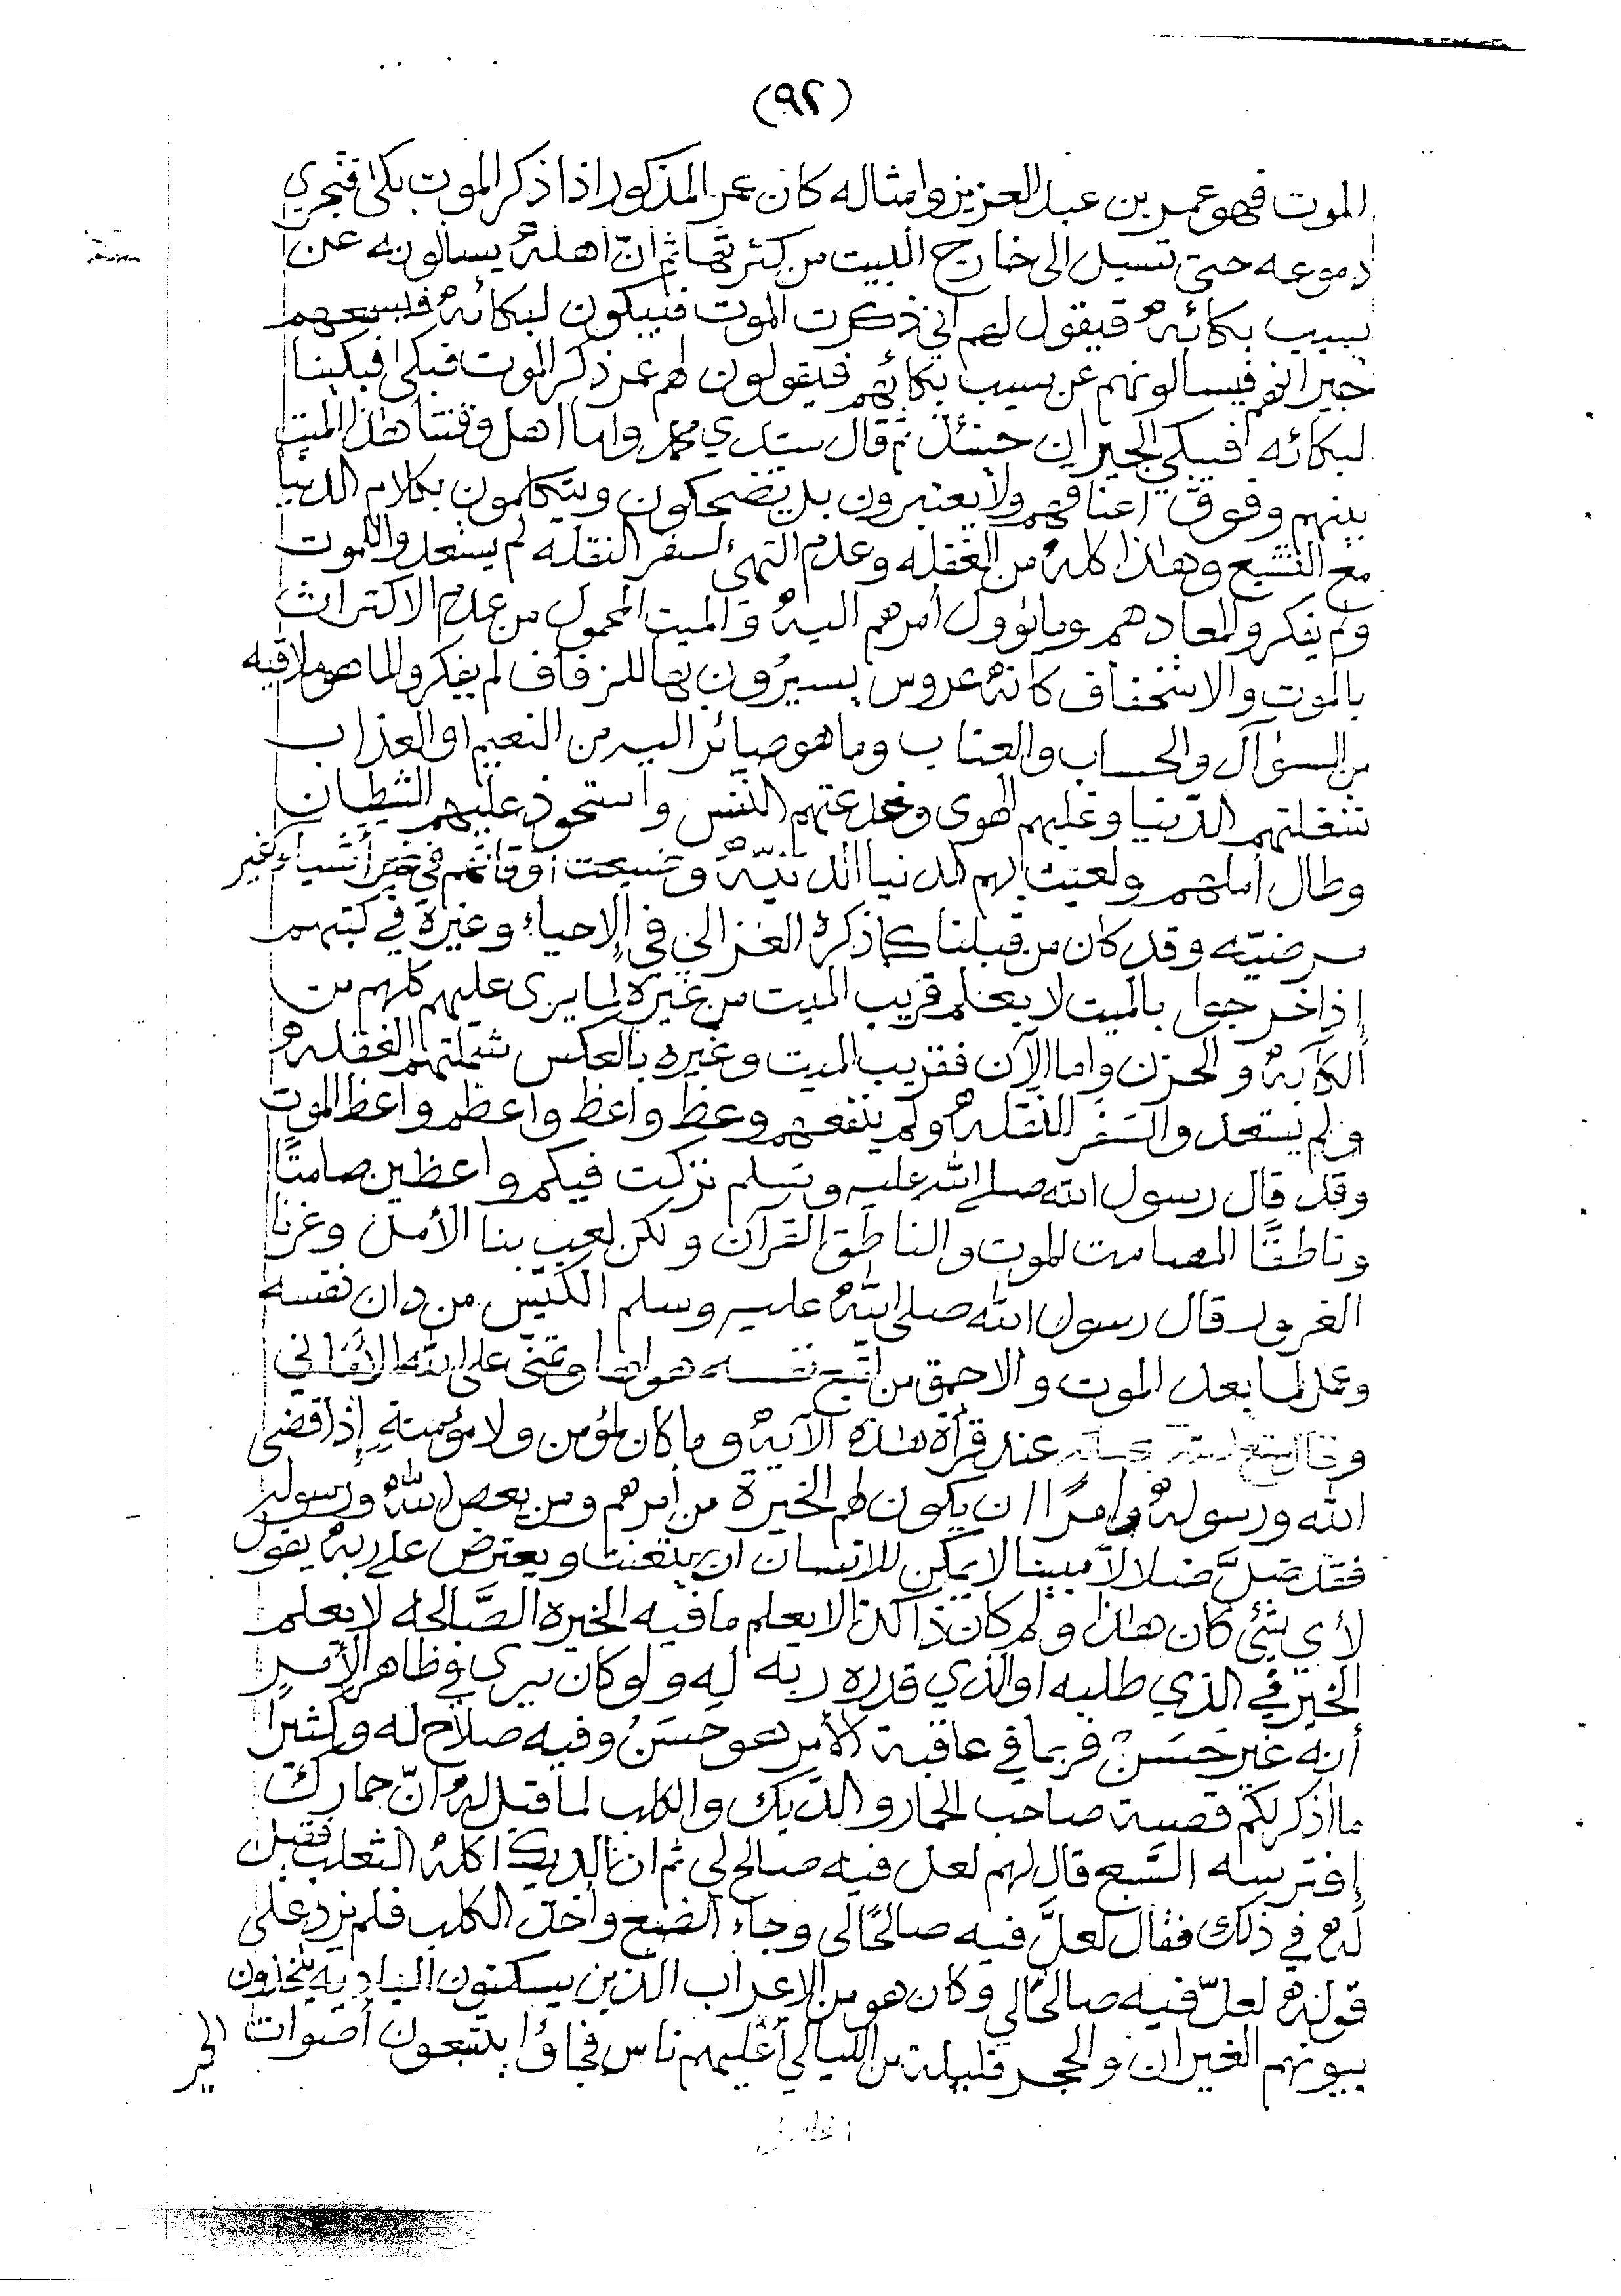 (٩٢)
الموت فهو عمر بن عبد العزيز وامثاله كان عمر المذكور اذا ذكر الموت بكى فتجري
دموعه حتى تسيل الى خارج البيت من كثرتها ثم انّ اهله يسالونه عن
سبب بكائه فيقول لهم اني ذكرت الموت فيبكون لبكائه فيسمعهم
جيرانهم فيسالونهم عن سبب بكائهم فيقولون لهم عمر ذكر الموت فبكى فبكينا
لبكائه فيبكي الجيران حينئذ ثم قال سيدي محمد واما اهل وقتنا هذا الميت
بينهم وفوق اعناقهم ولا يعتبرون بل يضحكون ويتكلمون بكلام الدنيا
مع التشيع وهذا كله من الغفله وعدم التهيء لسفر النقله لم يستعدوا للموت
ولم يفكروا لمعادهم وما يؤول أمرهم اليه والميت المحمول من عدم الاكتراث
بالموت والاستخفاف كانه عروس يسيرون بها للزفاف لم يفكروا لما هو ملاقيه
من السؤال والحساب والعتاب وما هو صائر اليه من النعيم او العذاب
شغلتهم الدّنيا وغلبهم الهوى وخدعتهم النفس واستحوذ عليهم الشيطان
وطال أملهم ولعبت بهم الدنيا الدنيّه وضيعت أوقاتهم في أشياء غير
مرضيّه وقد كان من قبلنا كما ذكره الغزالي في الاحياء وغيره في كتبهم
إذا خرجوا بالميت لا يعلم قريب الميت من غيره لما يرى عليهم كلهم من
الكآبه والحزن واما الآن فقريب الميت وغيره بالعكس شملتهم الغفله
ولم يستعدوا لسفر النقله ولم ينفعهم وعظ واعظ واعظم واعظ الموت
وقد قال رسول الله صلى الله عليه وسلم تركت فيكم واعظين صامتًا
وناطقًا الصامت الموت والناطق القرآن ولكن لعب بنا الأمل وغرنا
الغرور قال رسول الله صلى الله عليه وسلم الكيّس من دان نفسه
وعمل لما بعد الموت والاحمق من اتبع نفسه هواها وتمنى على الله الأماني
وقال عند قرأة هذه الآيه وما كان لمؤمن ولا مؤمنةٍ إذا قضى
الله ورسوله امرًا ان يكون لهم الخيرة من أمرهم ومن يعص الله ورسوله
فقد ضلَّ ضلالاً مبينا لا يمكن للانسان ان يتعنت ويعترض على ربه يقول
لأي شيء كان هذا ولم كان ذا كذا لا يعلم ما فيه الخيره الصَّالحه لا يعلم
الخير في الذي طلبه او الذي قدره ربه له ولو كان يرى في ظاهر الأمرِ
أنه غير حسَن فربما في عاقبة الأمر هو حَسَنٌ وفيه صلاح له وكثيرًا
ما اذكر لكم قصة صاحب الحمار والديك والكلب لما قيل له انّ حمارك
إفترسه السَّبع قال لهم لعل فيه صالح لي ثم ان الديك اكله الثعلب فقيل
له في ذلك فقال لعلَّ فيه صالحًا لي وجاء الضبع وأخذ الكلب فلم يزد على
قوله لعلّ فيه صالحًا لي وكان هو من الاعراب الذين يسكنون الباديه يتخذون
بيوتهم الغيران والحجر فليلة من الليالي أغليهم ناس فجاؤا يتتبعون أصوات
الحمير